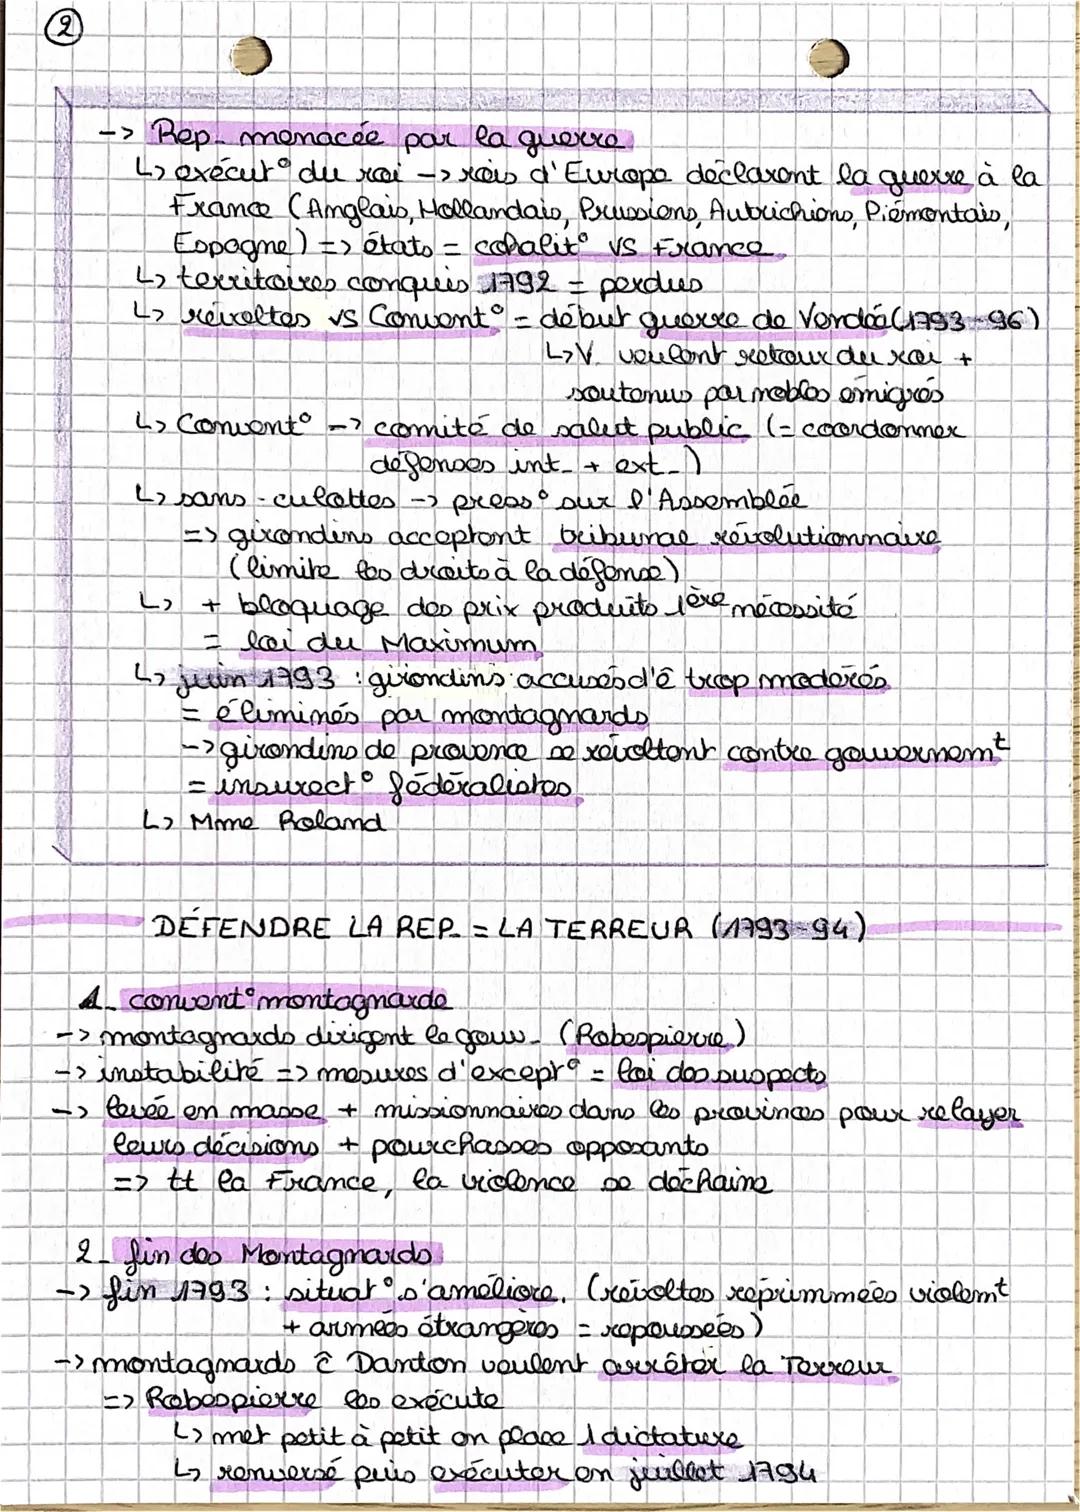 2
-> Rep. menacée par la guerre
↳ exécut° du roi -> rois d'Europe déclarent la guerre à la
France (Anglais, Hollandais, Prussiens, Autrichiens, Piémontais,
Espagne) => états = coalit° VS France
↳ territoires conquis 1792 = perdus
↳ révoltes vs Convent° = début guerre de Vendée (1793-96)
↳ V. veulent retour du roi +
soutenus par nobles émigrés
↳ Convent° -> comité de salut public (= coordonner
défenses int. + ext.)
↳ sans-culottes -> press° sur l'Assemblée
=> girondins acceptent tribunal révolutionnaire
(limite les droits à la défense)
↳ + bloquage des prix produits 1ère nécessité
= loi du Maximum
↳ juin 1793 : girondins accusés d'ê trop modérés
= éliminés par montagnards
-> girondins de provence se révoltent contre gouvernemt
= insurect° fédéralistes
↳ Mme Roland
DÉFENDRE LA REP. = LA TERREUR (1793-94)
1. convent° montagnarde
-> montagnards dirigent le gouv. (Robespierre)
-> instabilité => mesures d'except° = loi des suspects
-> levée en masse + missionnaires dans les provinces pour relayer
leurs décisions + pourchasses opposants
=> tt la France, la violence se déchaine
2. fin des Montagnards
-> fin 1793 : situat° s'améliore. (révoltes réprimmées violemt
+ armées étrangères = repoussées)
-> montagnards ĉ Danton veulent arrêter la Terreur
=> Robespierre les exécute
↳ met petit à petit en place 1 dictature
↳ renversé puis exécuter en juillet 1794